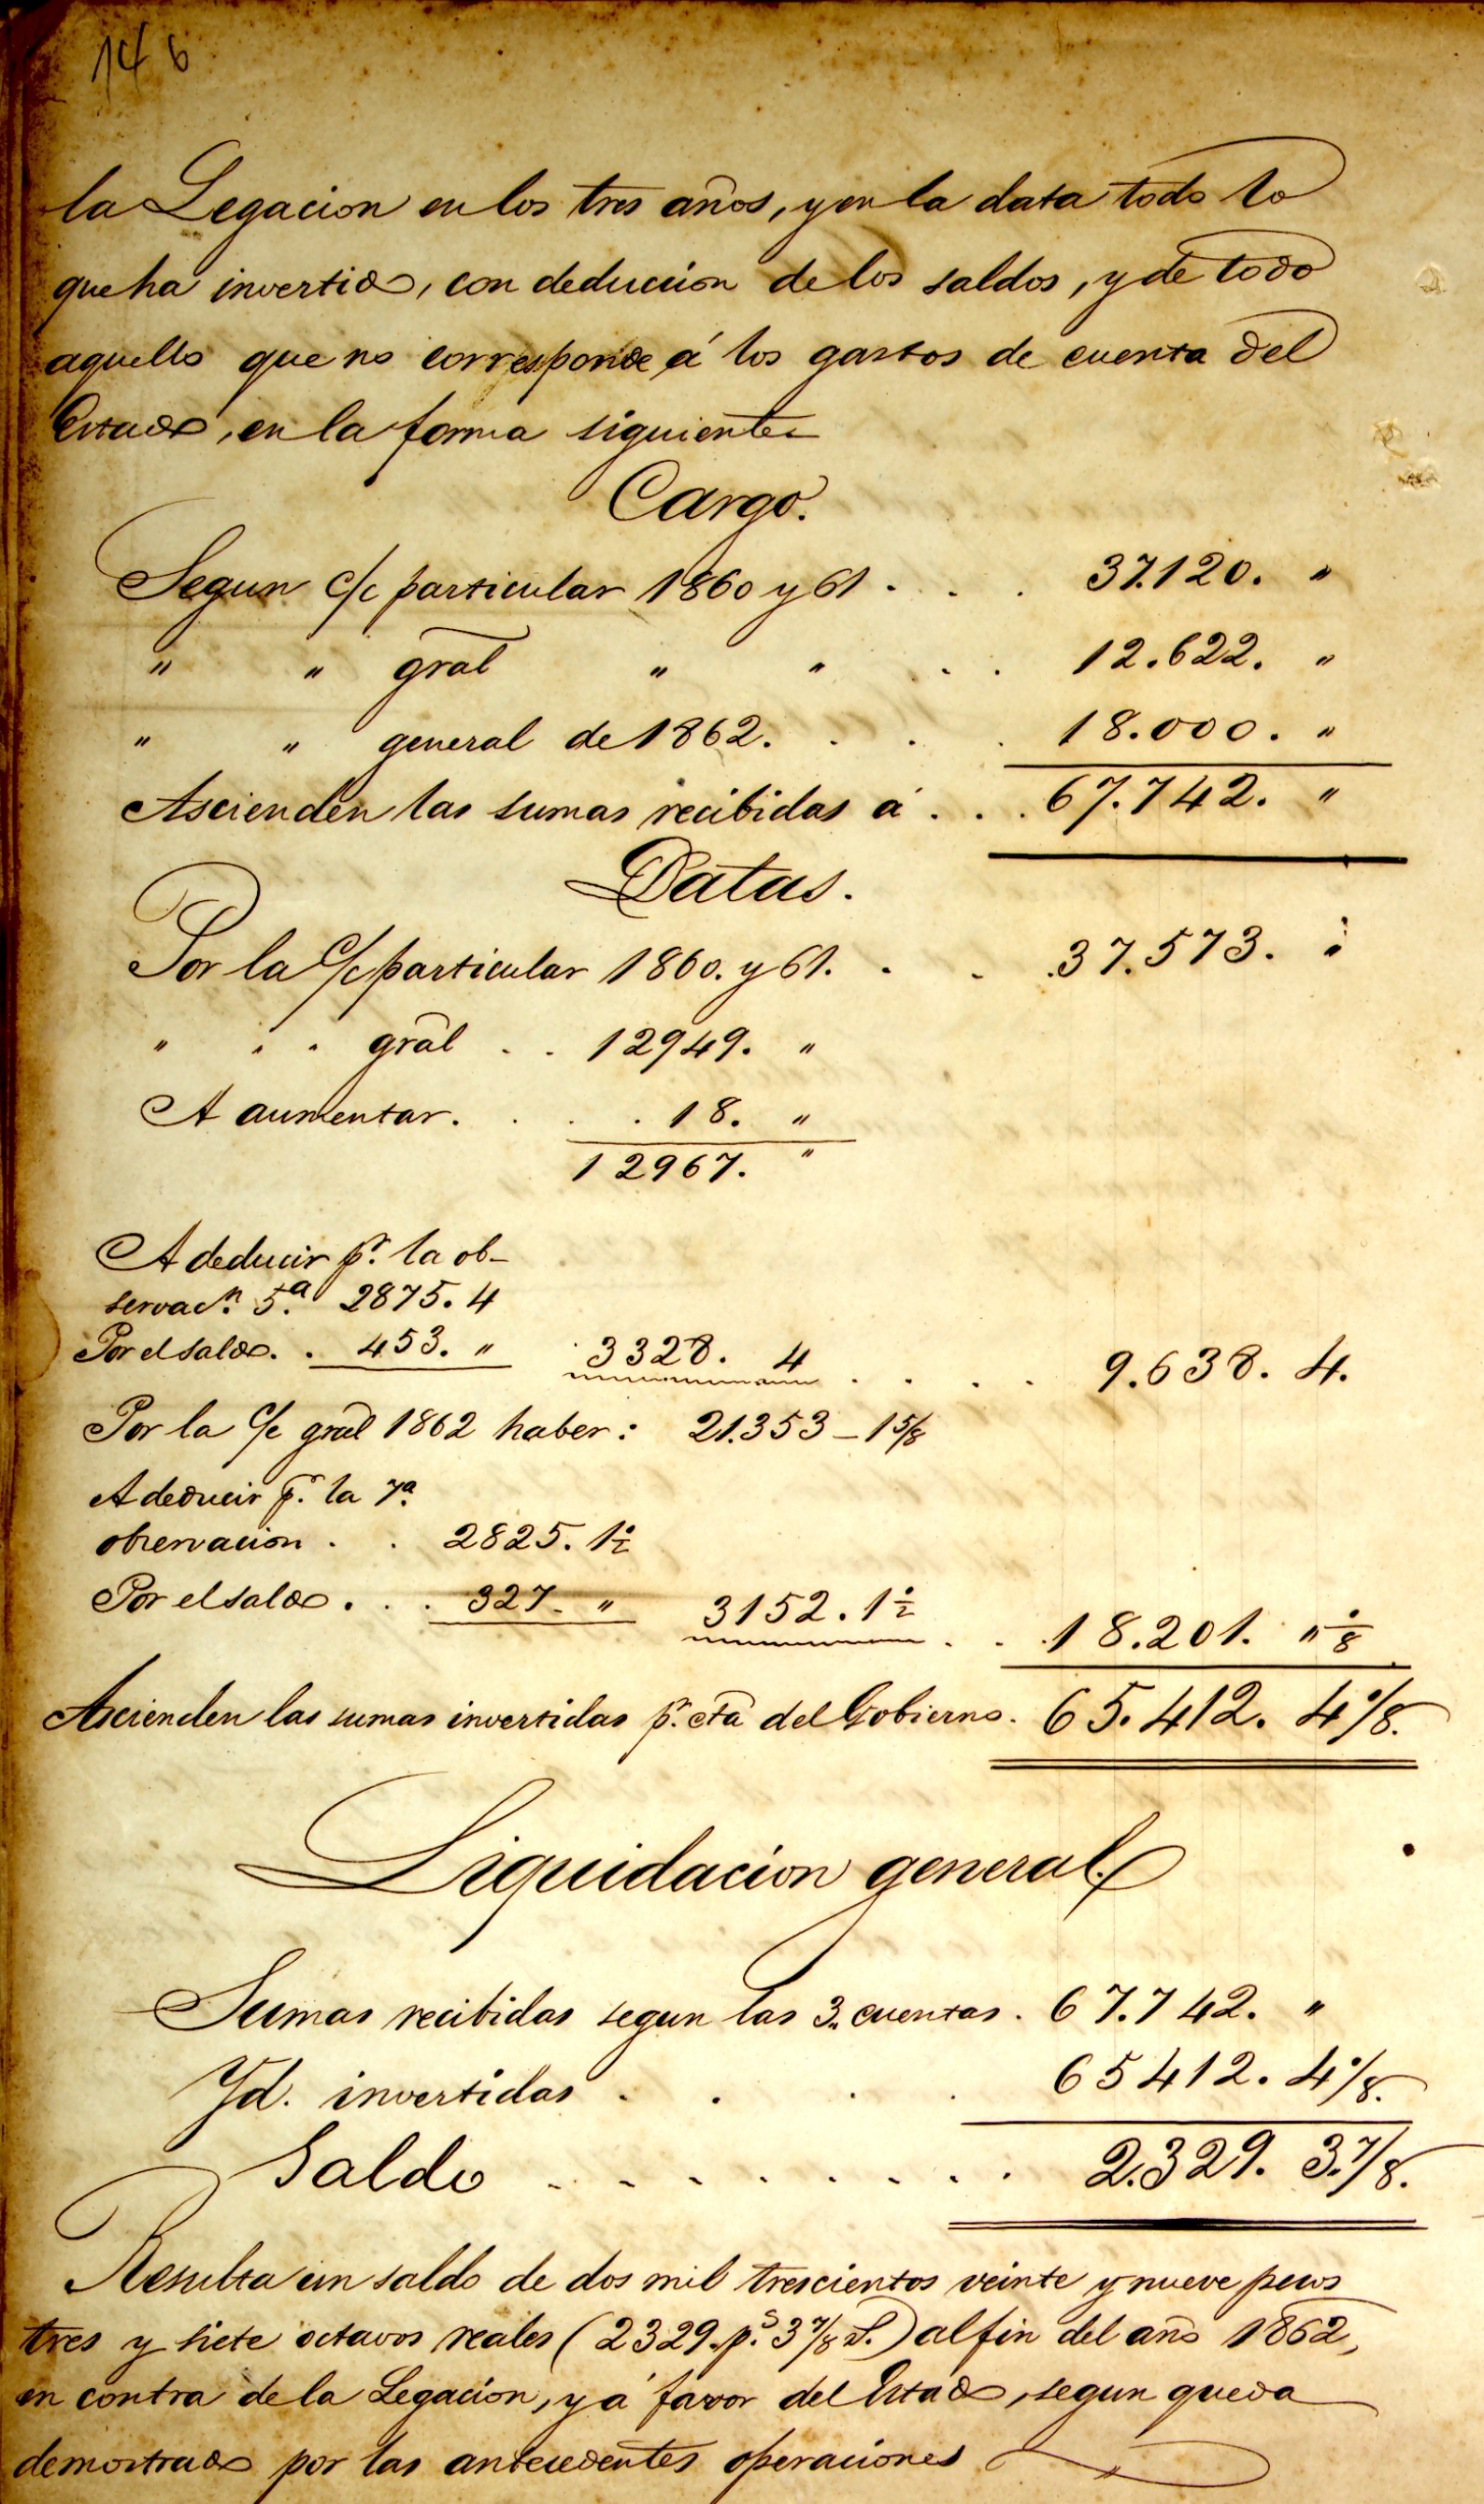 146
la Legacion en los tres años, y en la data todo lo
que ha invertido, con deduccion de los saldos, y de todo
aquello que no corresponde á los gastos de cuenta del
Estado, en la forma siguiente
Cargo.
Segun c/c particular 1860 y 61 . . . 37.120. "
" " gral " " . . 12.622. "
" " general de 1862. . . . 18.000. "
Ascienden las sumas recibidas á . . . 67.742. "
Datas.
Por la c/c particular 1860. y 61. . . . 37.573. "
" " " gral . . 12949. "
A aumentar. . . . 18. "
12967. "
A deducir pr. la ob-
servacn. 5.a 2875. 4
Por el saldo. . 453. " 3328. 4 . . . . 9.638. 4.
Por la c/c gral 1862 haber: 21.353 - 1 5/8
A deducir pr. la 7a.
observacion . . 2825. 1 1/2
Por el saldo . . . 327. " 3152. 1 1/2 . . . 18.201. " 1/8
Ascienden las sumas invertidas pr. cta del Gobierno. 65.412. 4 1/8.
Liquidacion general.
Sumas recibidas segun las 3.. cuentas . 67.742. "
Yd. invertidas . . . . 65412. 4 1/8.
Saldo - - - - - - - - 2.329. 3. 7/8.
Resulta un saldo de dos mil trescientos veinte y nueve pesos
tres y siete octavos reales (2329. p.s 3 7/8 rl.) al fin del año 1862,
en contra de la Legacion, y á favor del Estado, segun queda
demostrado por las antecedentes operaciones